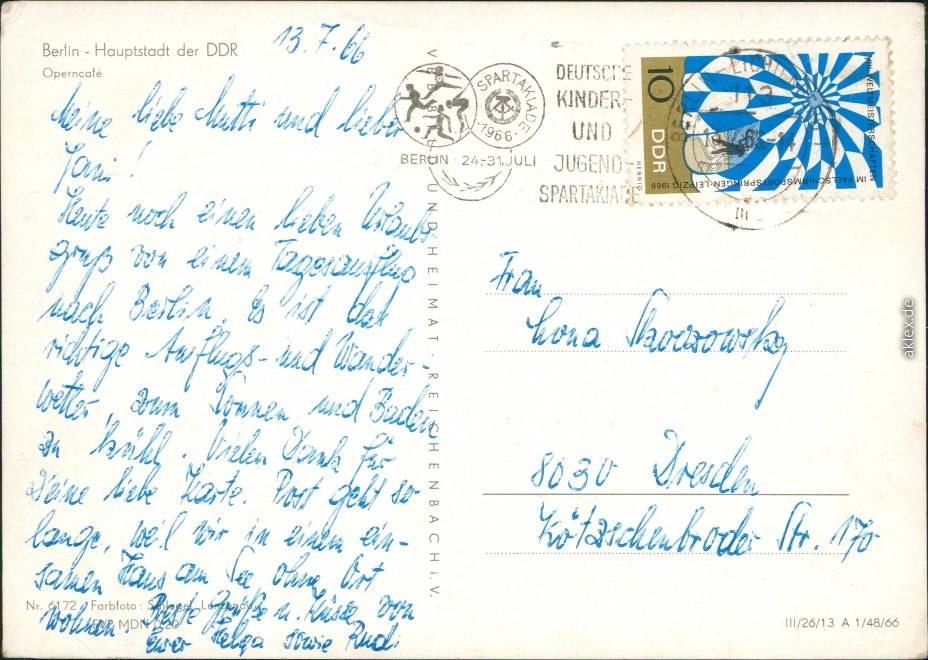 Berlin - Hauptstadt der DDR
Operncafé
13.7.66
Meine liebe Mutti und lieber
Jani!
Heute noch einen lieben Urlaubs
gruß von einem Tagesausflug
nach Berlin. Es ist das
richtige Ausflugs- und Wander-
wetter, zum Sonnen und Baden
zu kühl. Vielen Dank für
Deine liebe Karte. Post geht so
lange, weil wir in einem ein-
samen Haus am See ohne Ort
wohnen. Beste Grüße u. Küsse von
Euer Helga sowie Rudi
Nr. 6172 Farbfoto:
MDN 0,20
UND HEIMAT · REICHENBACH i. V.
SPARTAKIADE
· 1966 ·
BERLIN · 24.-31. JULI
DEUTSCHE
KINDER-
UND
JUGEND-
SPARTAKIADE
10
DDR
HENNIG
VIII. WELTMEISTERSCHAFTEN
IM FALLSCHIRMSPORTSPRINGEN · LEIPZIG 1966
Frau
Skorzowsky
8030 Dresden
Kötzschenbroder Str. 170
III/26/13 A 1/48/66
aklex.de